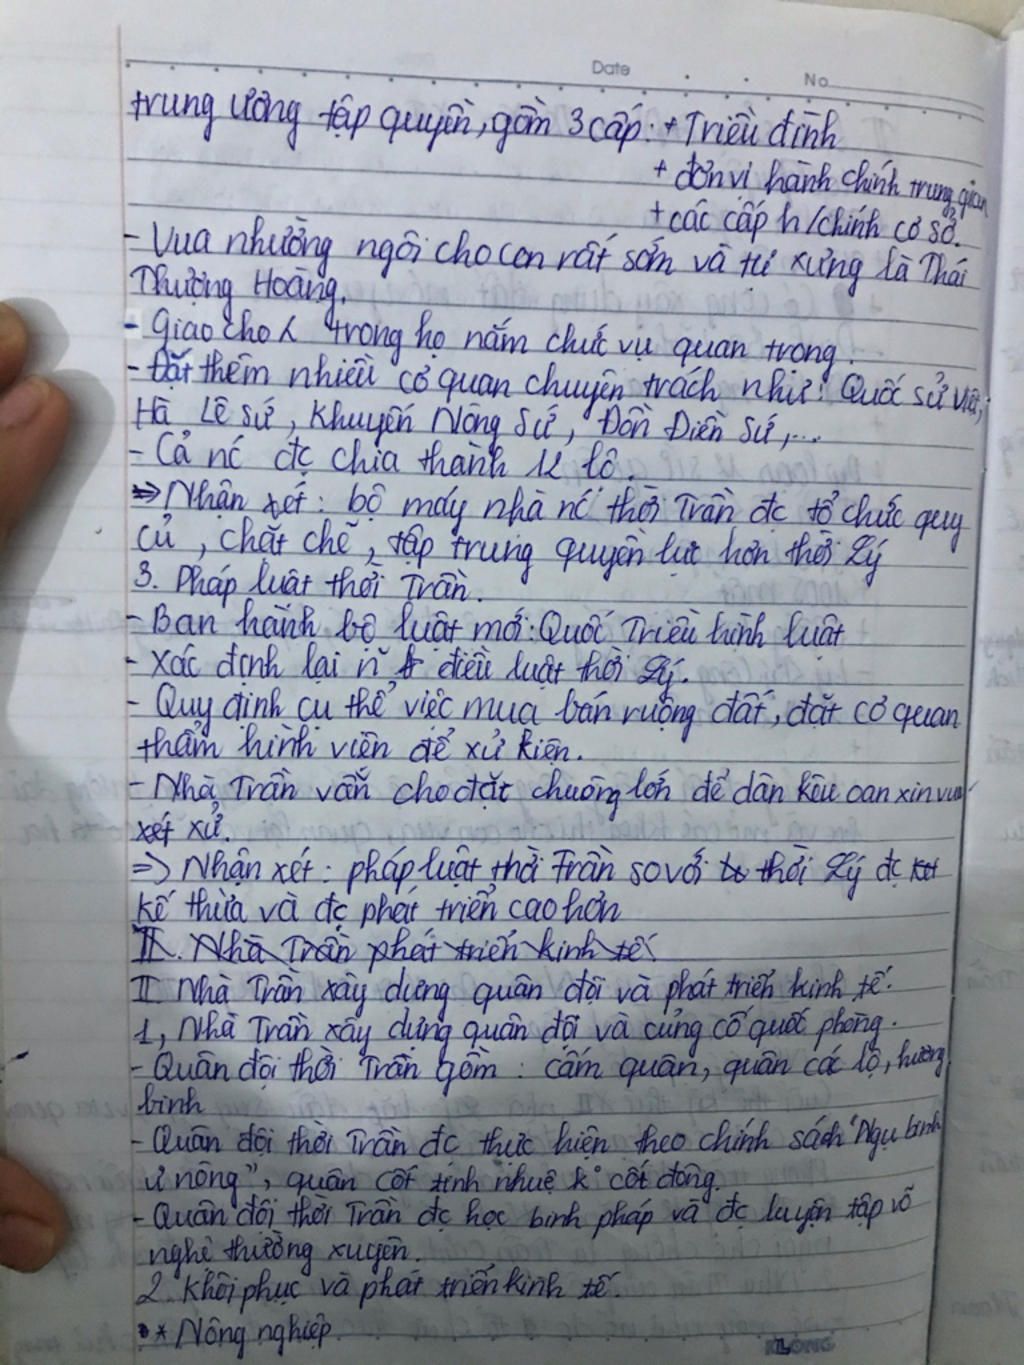 Date No.
trung ương tập quyền, gồm 3 cấp: + Triều đình
+ đơn vị hành chính trung gian
+ các cấp h/chính cơ sở.
- Vua nhường ngôi cho con rất sớm và tự xưng là Thái
Thượng Hoàng.
- Giao cho trong họ nắm chức vụ quan trọng.
- Đặt thêm nhiều cơ quan chuyên trách như: Quốc sử viện,
Hà Lê sứ, Khuyến Nông Sứ, Đồn Điền Sứ,...
- Cả nc đc chia thành 12 lộ.
=> Nhận xét: bộ máy nhà nc thời Trần đc tổ chức quy
củ, chặt chẽ, tập trung quyền lực hơn thời Lý
3. Pháp luật thời Trần.
- Ban hành bộ luật mới: Quốc Triều hình luật
- Xác định lại n~ điều luật thời Lý.
- Quy định cụ thể việc mua bán ruộng đất, đặt cơ quan
thẩm hình viện để xử kiện.
- Nhà Trần vẫn cho đặt chuông lớn để dân kêu oan xin vua
xét xử.
=> Nhận xét: pháp luật thời Trần so với thời Lý đc
kế thừa và đc phát triển cao hơn
II. Nhà Trần phát triển kinh tế
II. Nhà Trần xây dựng quân đội và phát triển kinh tế.
1, Nhà Trần xây dựng quân đội và củng cố quốc phòng.
- Quân đội thời Trần gồm: cấm quân, quân các lộ, hương
binh
- Quân đội thời Trần đc thực hiện theo chính sách "Ngụ binh
ư nông", quân cốt tinh nhuệ k° cốt đông.
- Quân đội thời Trần đc học binh pháp và đc luyện tập võ
nghệ thường xuyên.
2. Khôi phục và phát triển kinh tế.
* Nông nghiệp.
KLONG